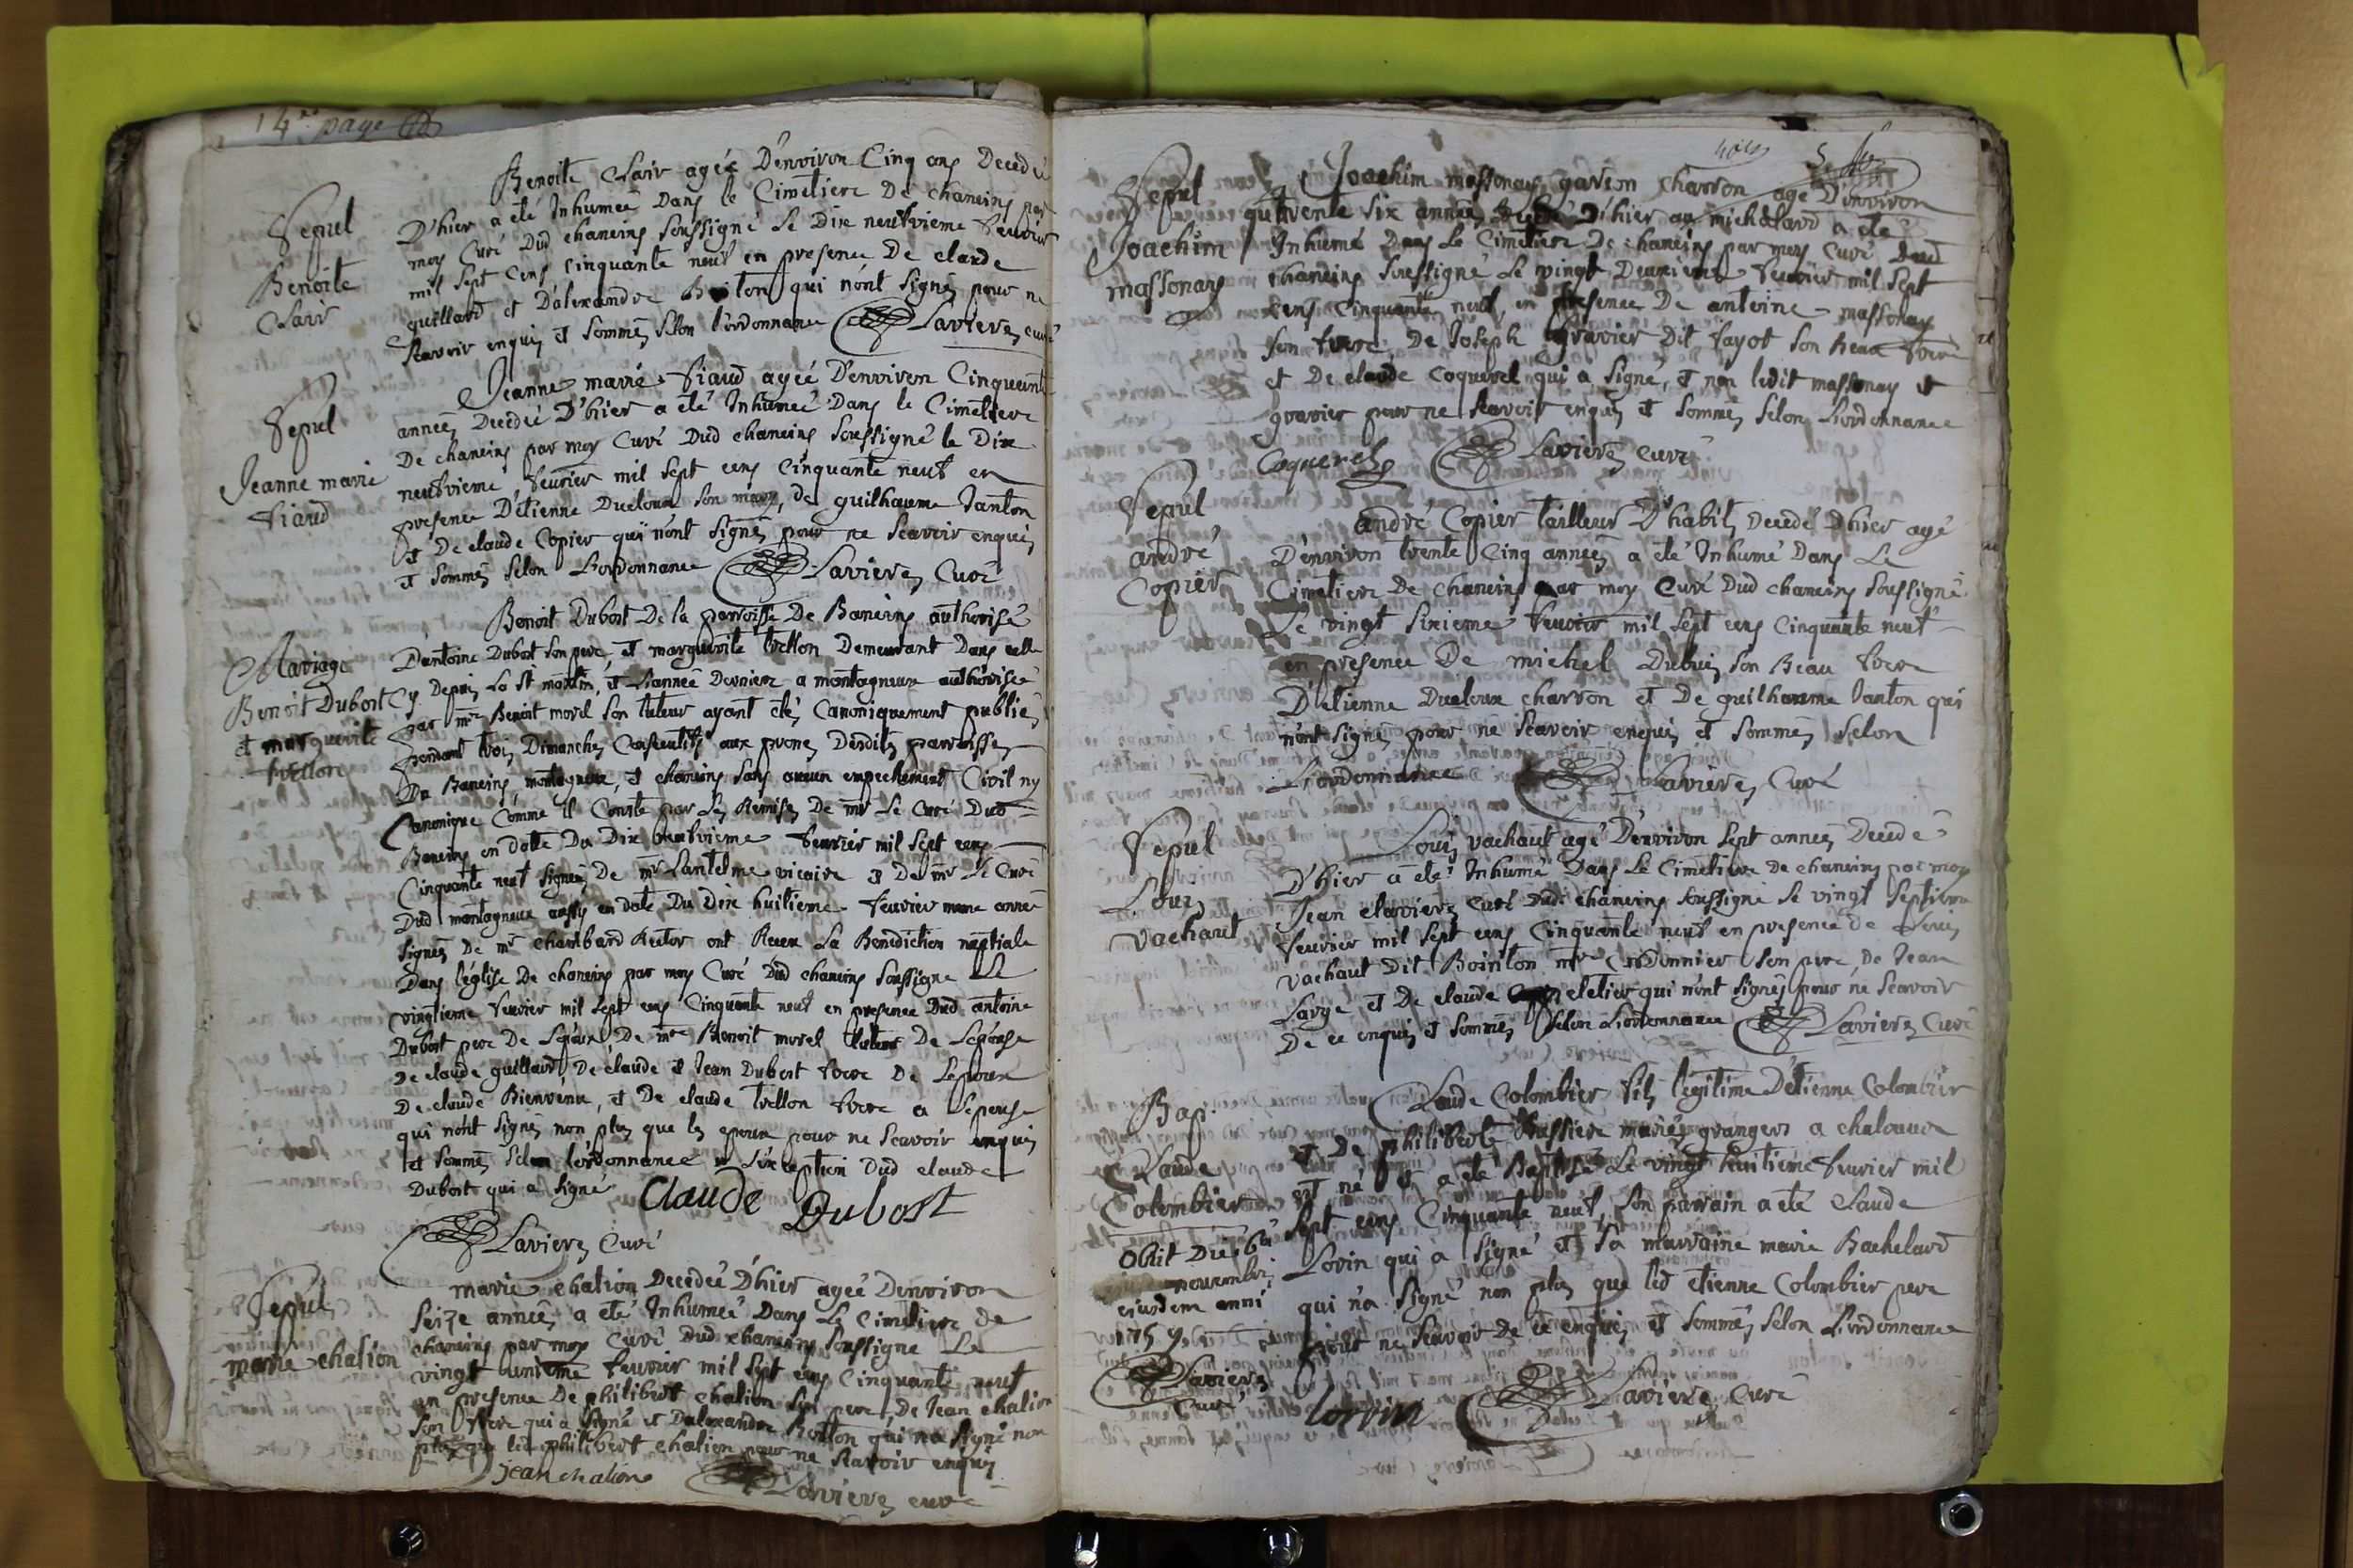 14me page
Sepul
Benoite
Clair
Benoite Clair agée D'environ Cinq ans Decedé
D'hier a eté Inhumeé Dans le Cimetiere De chaneins par
moy Curé Dud chaneins soussigné Le Dix neufvieme fevrier
mil sept cens cinquante neuf en presence De claude
guillard et D'alexandre Boiton qui n'ont signés pour ne
scavoir enquis et sommés selon l'ordonnance Lavieres curé
Sepul
Jeanne marie
fiaud
Jeanne marie fiaud agée D'environ Cinquante
années Decedeé D'hier a eté Inhumeé Dans le Cimetiere
De chaneins par moy Curé Dud chaneins soussigné le Dix
neufvieme fevrier mil sept cens cinquante neuf en
presence D'etienne Ducloux son mary, de guilhaume Janton
et De claude Copier qui n'ont signés pour ne scavoir enquis
et sommés selon L'ordonnance Lavieres Curé
Mariage
Benoit Dubost
et marguerite
trellon
Benoit Dubost De la parroisse De Baneins authorisé
D'antoine Dubost son pere, et marguerite trellon Demeurant Dans celle
Cy Depuis La St martin, et L'annee Derniere a montagneux authorisée
par mre Benoit morel son tuteur ayant etés Canoniquement publiés
pendant trois Dimanches Consecutifs aux prones Desdites parroisses
De Baneins, montagneux, et chaneins sans aucun empechement Civil ny
Canonique Comme il Conste par Les Remises De mr Le Curé Dud
Baneins en datte Du Dix neufvieme fevrier mil sept cens
Cinquante neuf signés De mr Lantelme vicaire et De mr Le Curé
Dud montagneux aussy en date Du Dix huitieme fevrier meme année
signés De mr chambard Rector ont Receu La Benediction nuptiale
Dans l'église De chaneins par moy Curé Dud chaneins soussigné Le
vingtieme fevrier mil sept cens Cinquante neuf en presence Dud antoine
Dubost pere De Lepoux, De mre Benoit morel tuteur De Lepouse
De claude guillard, De claude et Jean Dubost frere De Lepoux
De claude Bienvenu, et De claude trellon frere a Lepouse
qui n'ont signés non plus que les epoux pour ne scavoir enquis
et sommés selon lordonnance a L'exception Dud claude
Dubost qui a signé Claude Dubost
Lavieres Curé
Sepul
marie chalion
marie chalion Decedeé D'hier ageé Denviron
seize années a eté Inhumeé Dans Le Cimetiere de
chaneins par moy Curé Dud chaneins soussigné Le
vingt unieme fevrier mil sept cens Cinquante neuf
en presence De philibert chalion son pere, De Jean chalion
son frere qui a signé et Dalexandre Boiton qui n'a signé non
plus que led philibert chalion pour ne scavoir enquis
jean chalion Lavieres curé
Sepul
Joachim
massonay
Joachim massonay garson charron agé D'environ
quarente six années Decedé D'hier au michalard a eté
Inhumé Dans Le Cimetiere De chaneins par moy Curé Dud
chaneins soussigné Le vingt Deuxieme fevrier mil sept
cens cinquante neuf, en presence De antoine massonay
son frere, De Joseph gravier Dit fayot son beau frere
et De claude Coquerel qui a signé, et non ledit massonay et
gravier pour ne scavoir enquis et sommés selon L'ordonnance
Coquerel Lavieres curé
Sepul
andré
Copier
andré Copier tailleur D'habits Decedé D'hier agé
D'environ trente Cinq années a eté Inhumé Dans Le
Cimetiere De chaneins par moy Curé Dud chaneins soussigné
Le vingt sixieme fevrier mil sept cens cinquante neuf
en presence De michel Dubuis son Beau frere
D'etienne Ducloux charron et De guilhaume Janton qui
n'ont signés pour ne scavoir enquis et sommés selon
L'ordonnance Lavieres Curé
Sepul
Louis
vachaut
Louis vachaut agé D'environ sept années Decedé
D'hier a eté Inhumé Dans Le Cimetiere de chaneins par moy
Jean clavieres curé dud chaneins soussigné le vingt septieme
fevrier mil sept cens Cinquante neuf en presence de Louis
vachaut Dit Boiriton mre Cordonnier son pere, De Jean
Large, et De claude cletier qui n'ont signés pour ne scavoir
De ce enquis et sommés selon L'ordonnance Lavieres Curé
Bap.
Claude
Colombier
obiit Die 6a
novembris
ejusdem anni
1759
Lavieres
Curé
Claude Colombier fils legitime D'etienne Colombier
et De philiberte Bussiere mariés grangers a chalouan
est né et a eté Baptisé Le vingt huitieme fevrier mil
sept cens Cinquante neuf, son parrain a eté claude
Lorin qui a signé et sa marraine marie Bachelard
qui n'a signé non plus que led etienne Colombier pere
pour ne scavoir De ce enquis et sommés selon L'ordonnance
Lorvin Lavieres Curé